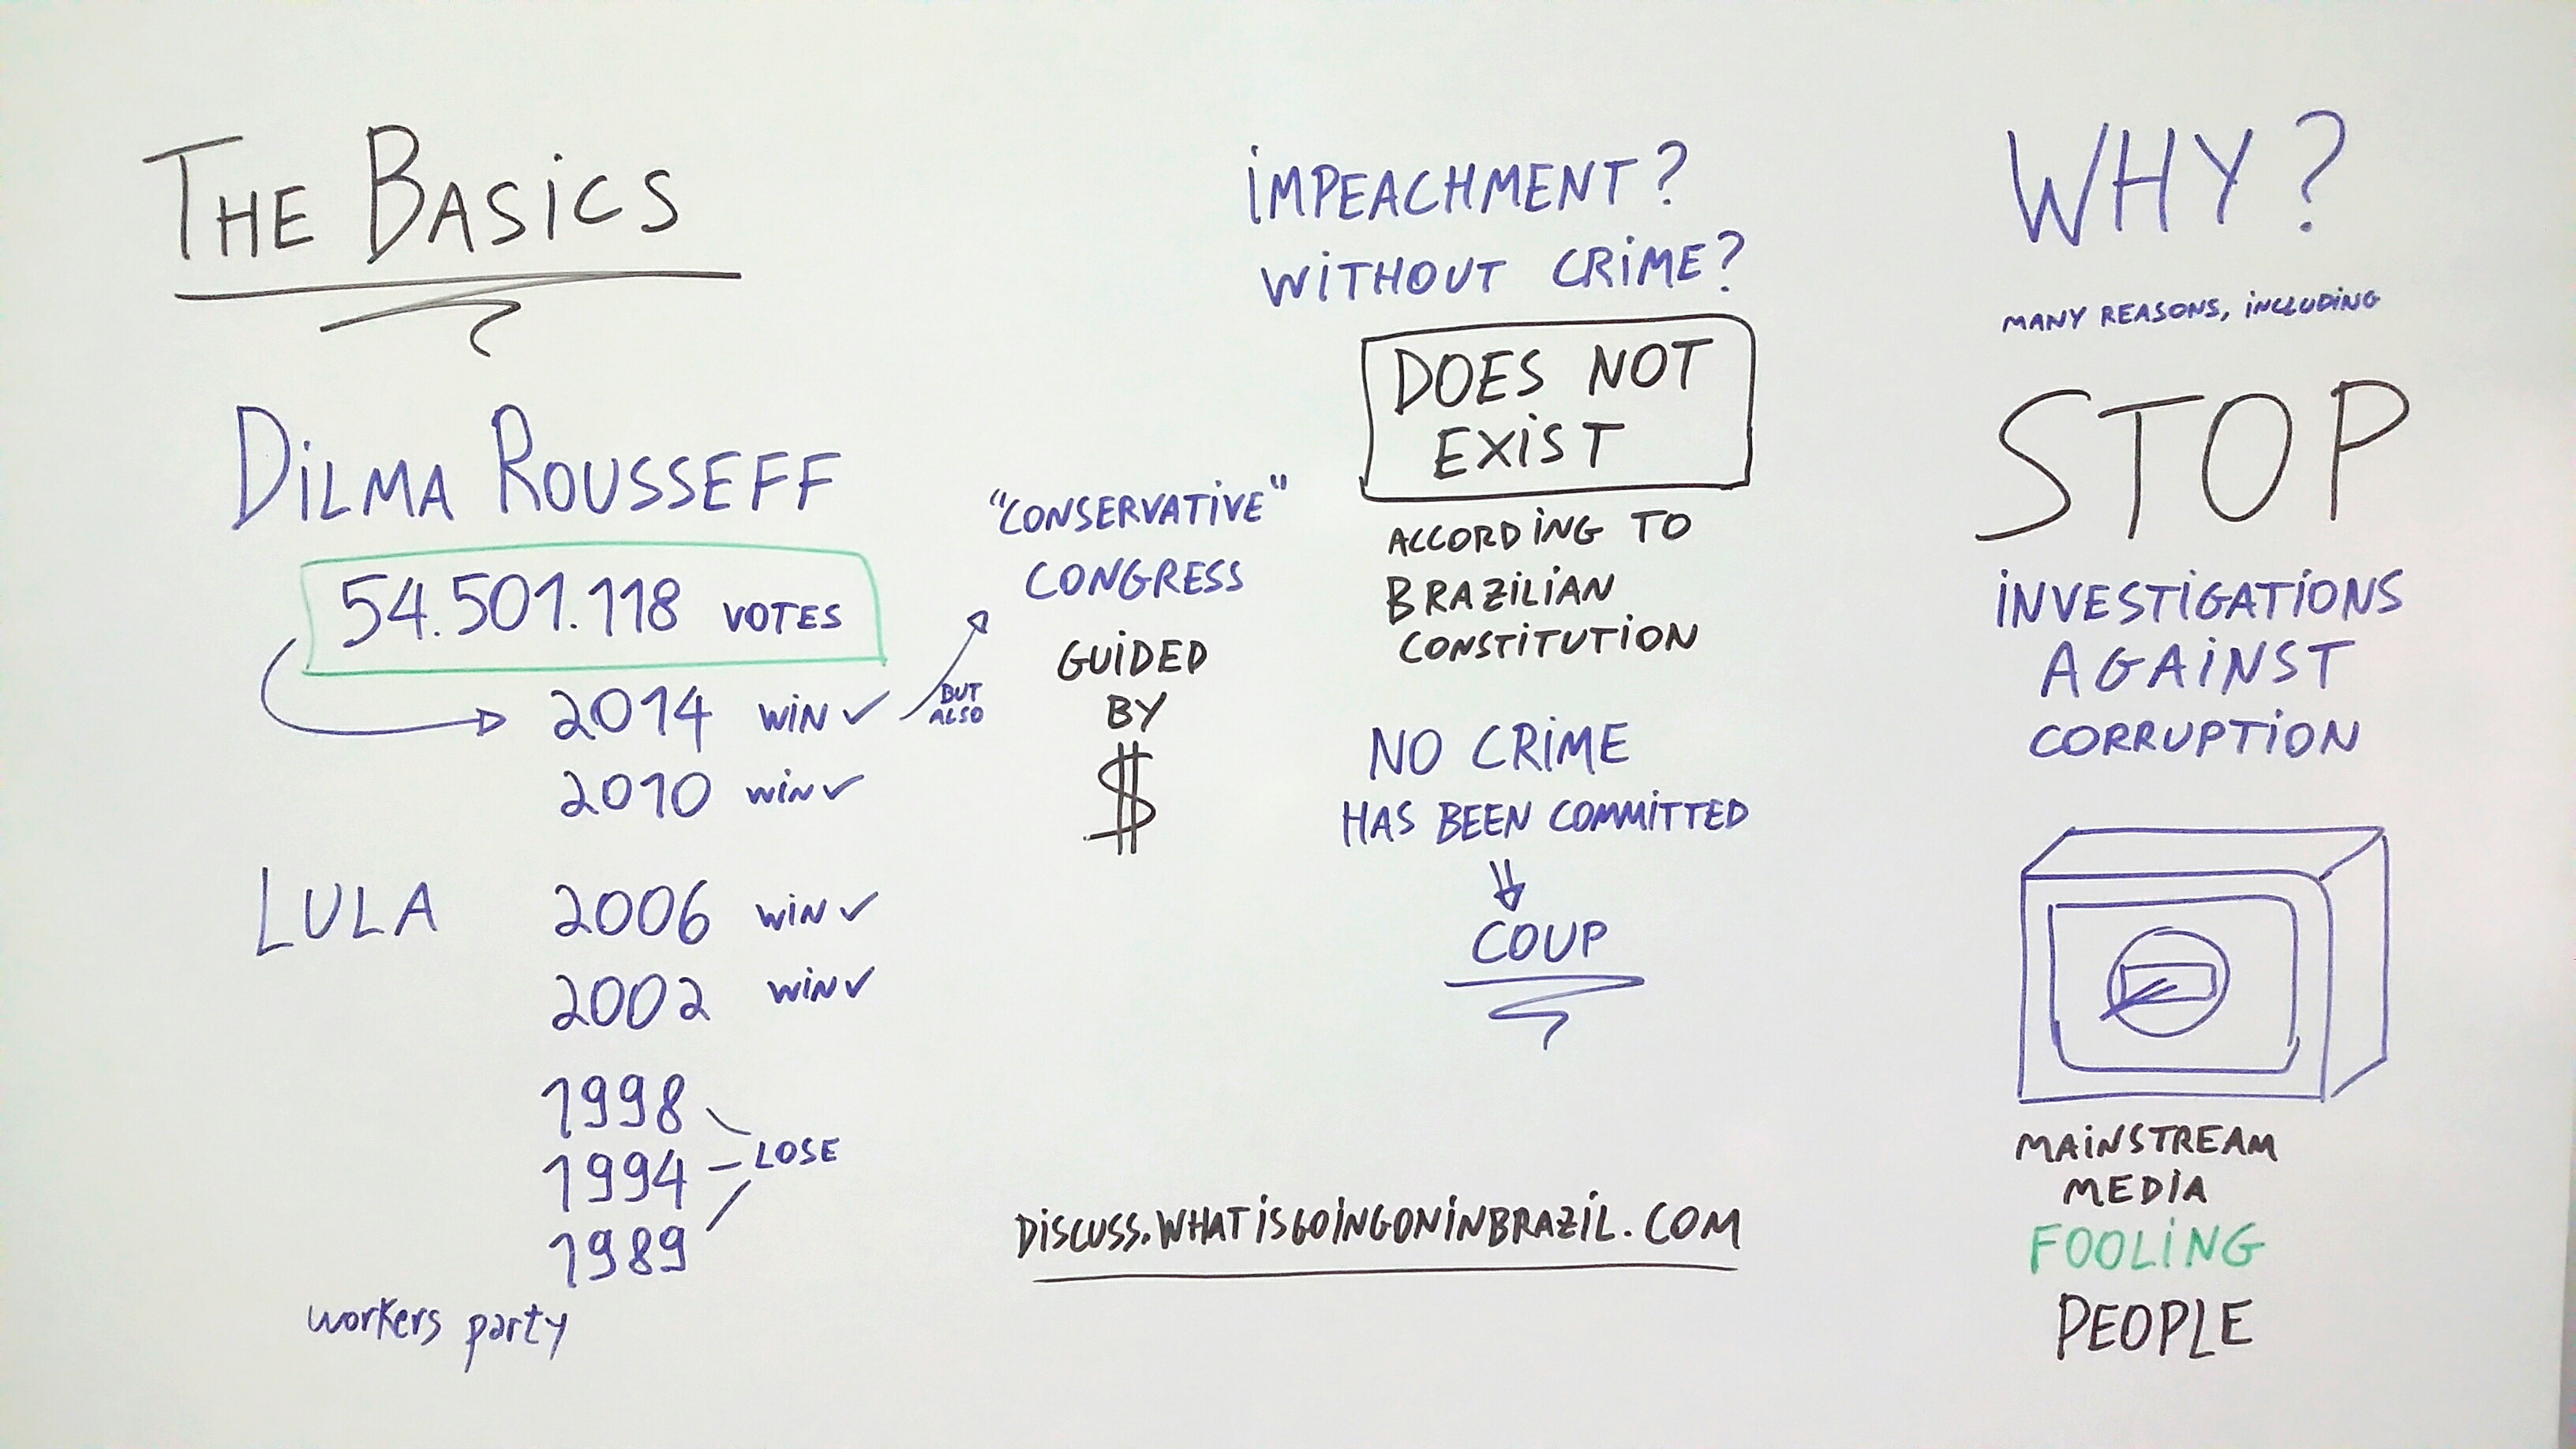 THE BASICS
DILMA ROUSSEFF
54.501.118 VOTES
2014 WIN
2010 WIN
LULA 2006 WIN
2002 WIN
1998
1994 LOSE
1989
workers party
BUT
ALSO
"CONSERVATIVE"
CONGRESS
GUIDED
BY
$
IMPEACHMENT?
WITHOUT CRIME?
DOES NOT
EXIST
ACCORDING TO
BRAZILIAN
CONSTITUTION
NO CRIME
HAS BEEN COMMITTED
COUP
DISCUSS.WHATISGOINGONINBRAZIL.COM
WHY?
MANY REASONS, INCLUDING
STOP
INVESTIGATIONS
AGAINST
CORRUPTION
MAINSTREAM
MEDIA
FOOLING
PEOPLE